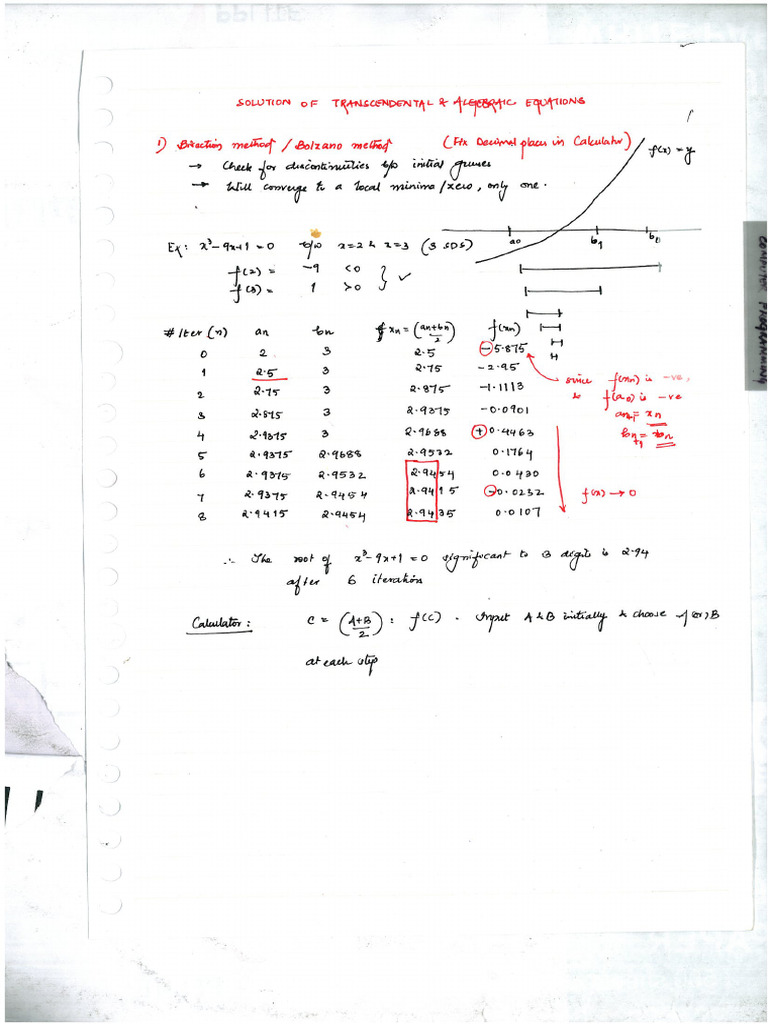 SOLUTION OF TRANSCENDENTAL & ALGEBRAIC EQUATIONS
1) Bisection method / Bolzano method (Fix Decimal places in Calculator)
→ Check for discontinuities b/w initial guesses
→ Will converge to a local minima/zero, only one.
f(x) = y
a0 b1 b0
Ex: x³-9x+1=0 b/w x=2 & x=3 (3 SDS)
f(2) = -9 <0
f(3) = 1 >0 } ✓
# Iter (n) an bn xn = (an+bn/2) f(xn)
0 2 3 2.5 -5.875
1 2.5 3 2.75 -2.95
2 2.75 3 2.875 -1.1113
3 2.875 3 2.9375 -0.0901
4 2.9375 3 2.9688 +0.4463
5 2.9375 2.9688 2.9532 0.1764
6 2.9375 2.9532 2.9454 0.0430
7 2.9375 2.9454 2.9415 -0.0232
8 2.9415 2.9454 2.9435 0.0107
since f(xn) is -ve,
& f(a0) is -ve
an+1 = xn
bn+1 = bn
f(x) → 0
∴ The root of x³-9x+1=0 significant to 3 digits is 2.94
after 6 iterations
Calculator: C = (A+B/2) : f(C) . Input A & B initially & choose A (or) B
at each step
COMPUTER PROGRAMMING